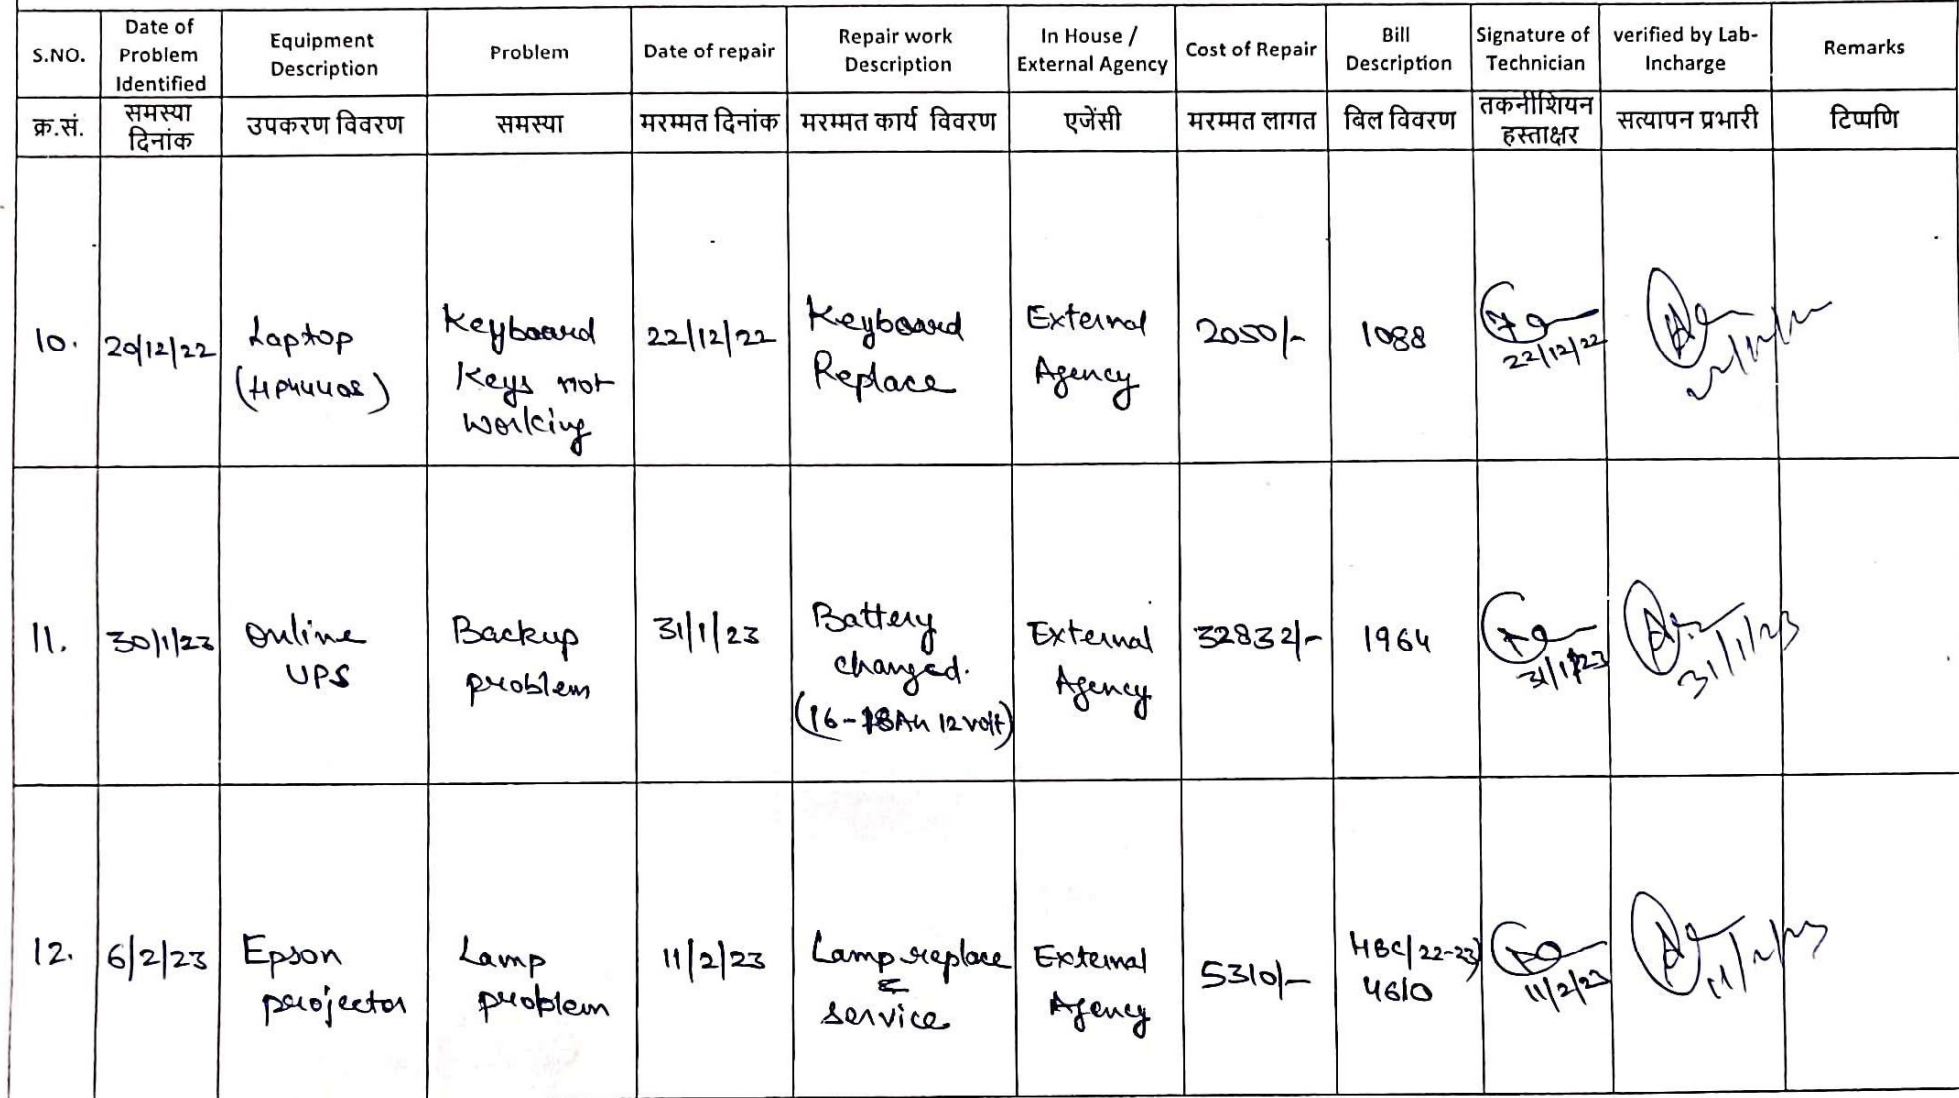 S.NO. Date of Problem Identified Equipment Description Problem Date of repair Repair work Description In House / External Agency Cost of Repair Bill Description Signature of Technician verified by Lab-Incharge Remarks
क्र.सं. समस्या दिनांक उपकरण विवरण समस्या मरम्मत दिनांक मरम्मत कार्य विवरण एजेंसी मरम्मत लागत बिल विवरण तकनीशियन हस्ताक्षर सत्यापन प्रभारी टिप्पणि
10. 20/12/22 Laptop (HP4440s) Keyboard Keys not working 22/12/22 Keyboard Replace External Agency 2050/- 1088 22/12/22
11. 30/1/23 Online UPS Backup problem 31/1/23 Battery changed. (16-18AH 12 volt) External Agency 32832/- 1964 31/1/23 31/1/23
12. 6/2/23 Epson projector Lamp problem 11/2/23 Lamp replace & service External Agency 5310/- HBC/22-23/ 4610 11/2/23 11/2/23